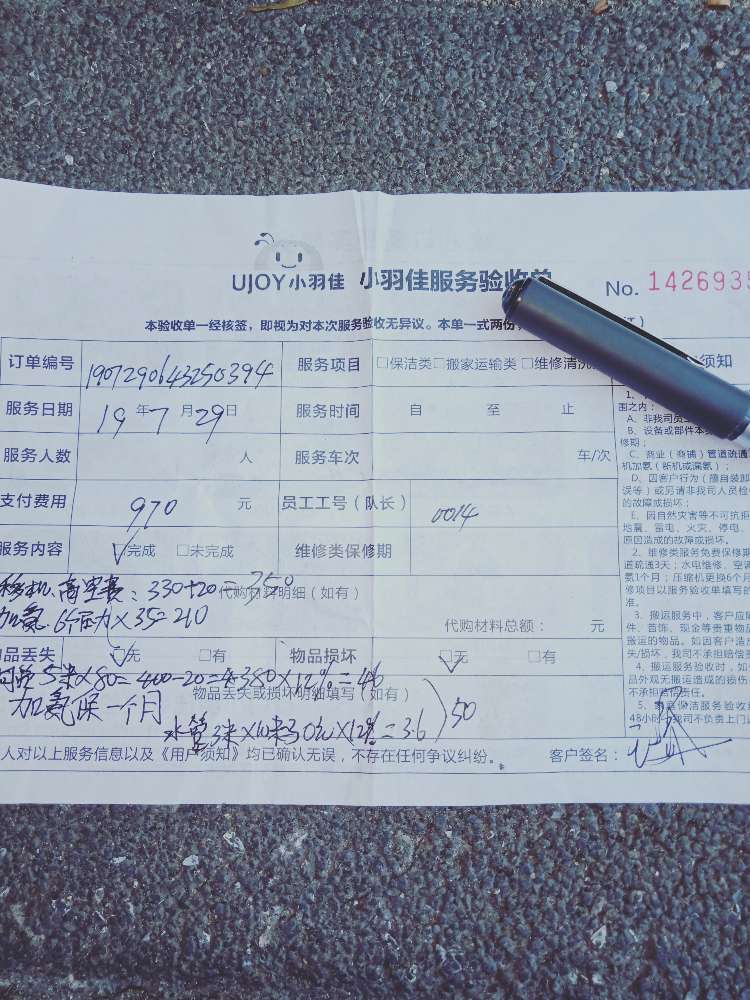 UJOY小羽佳 小羽佳服务验收单
No. 1426935
本验收单一经核签，即视为对本次服务验收无异议。本单一式两份，
订单编号 1907290643250394 服务项目 □保洁类□搬家运输类□维修清洗
须知
服务日期 19年7月29日 服务时间 自 至 止
服务人数 人 服务车次 车/次
支付费用 970 元 员工工号（队长） 0014
服务内容 ☑完成 □未完成 维修类保修期
移机、高空费：330+20=350
代购材料明细（如有）
加氨 6个压力×35=210
代购材料总额： 元
品丢失 ☑无 □有 物品损坏 ☑无 □有
5米×80=400-20=380×12%=46
物品丢失或损坏明细填写（如有）
加氨保一个月
水管3米×10=30元×12%=3.6 50
人对以上服务信息以及《用户须知》均已确认无误，不存在任何争议纠纷。 客户签名：
围之内：
A、非我司员
B、设备或部件本
修期；
C、商业（商铺）管道疏通
机加氨（新机或漏氨）；
D、因客户行为（擅自装卸
误等）或另请非我司人员检
的故障或损坏；
E、因自然灾害等不可抗拒
地震、雷电、火灾、停电、
原因造成的故障或损坏。
2、维修类服务免费保修期
道疏通3天；水电维修、空调
氨1个月；压缩机更换6个月
修项目以服务验收单填写的
准。
3、搬运服务中，客户应随
件、首饰、现金等贵重物品
搬运的物品。如因客户造成
失/损坏，我司不承担赔偿责
4、搬运服务验收时，如
品外观无搬运造成的损伤
不承担赔偿责任。
5、家庭保洁服务验收
48小时，我司不负责上门